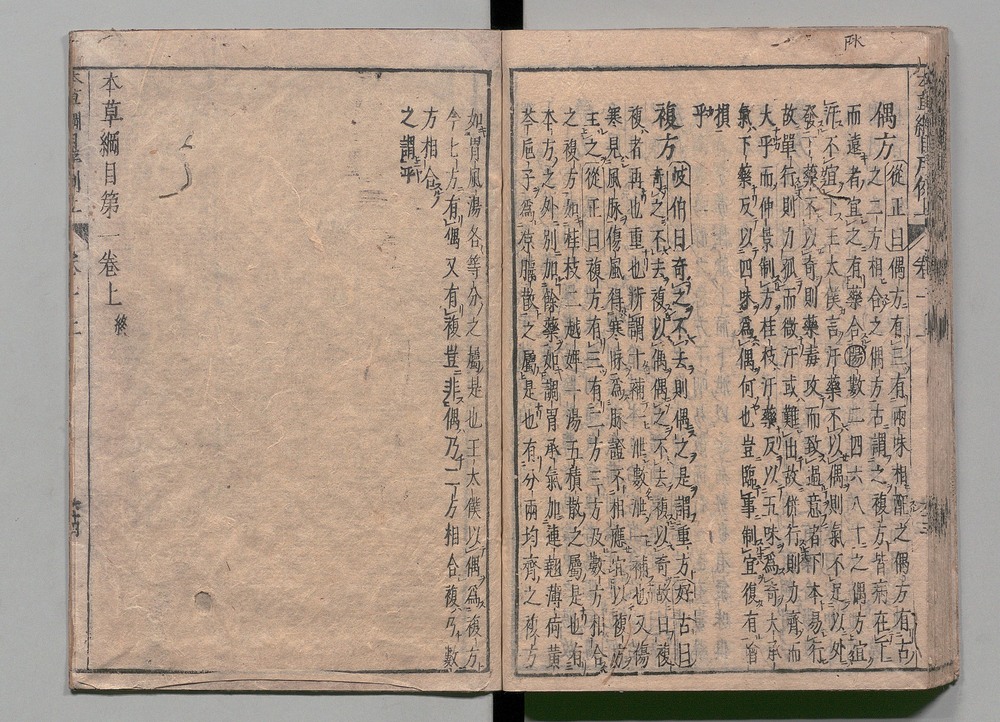 偶方從正曰偶方有三有兩味相配之偶方有古
之二方相合之偶方古謂之複方皆病在下
而遠者宜之有藥合陽數二四六八十之偶方宜
下不宜汗王太僕言汗藥不以偶則氣不足以外
發下藥不以奇則藥毒攻而致過意者下本易行
故單行則力孤而微汗或難出故併行則力齊而
大乎而仲景制方桂枝汗藥反以五味爲奇大承
氣下藥反以四味爲偶何也豈臨事制宜復有增
損乎
複方岐伯曰奇之不去則偶之是謂重方好古曰
奇之不去複以偶偶之不去複以奇故曰複
複者再也重也所謂十補一泄數泄一補也又傷
寒見風脉傷風得寒脉爲脉證不相應宜以複方
主之從正曰複方有三有二方三方及數方相合
之複方如桂枝二越婢一湯五積散之屬是也有
本方之外別加餘藥如調胃承氣加連翹薄荷黄
芩梔子爲凉膈散之屬是也有分兩均齊之複方
如胃風湯各等分之屬是也王太僕以偶爲複方
今七方有偶又有複豈非偶乃二方相合複乃數
方相合之謂乎
本草綱目第一卷上 終